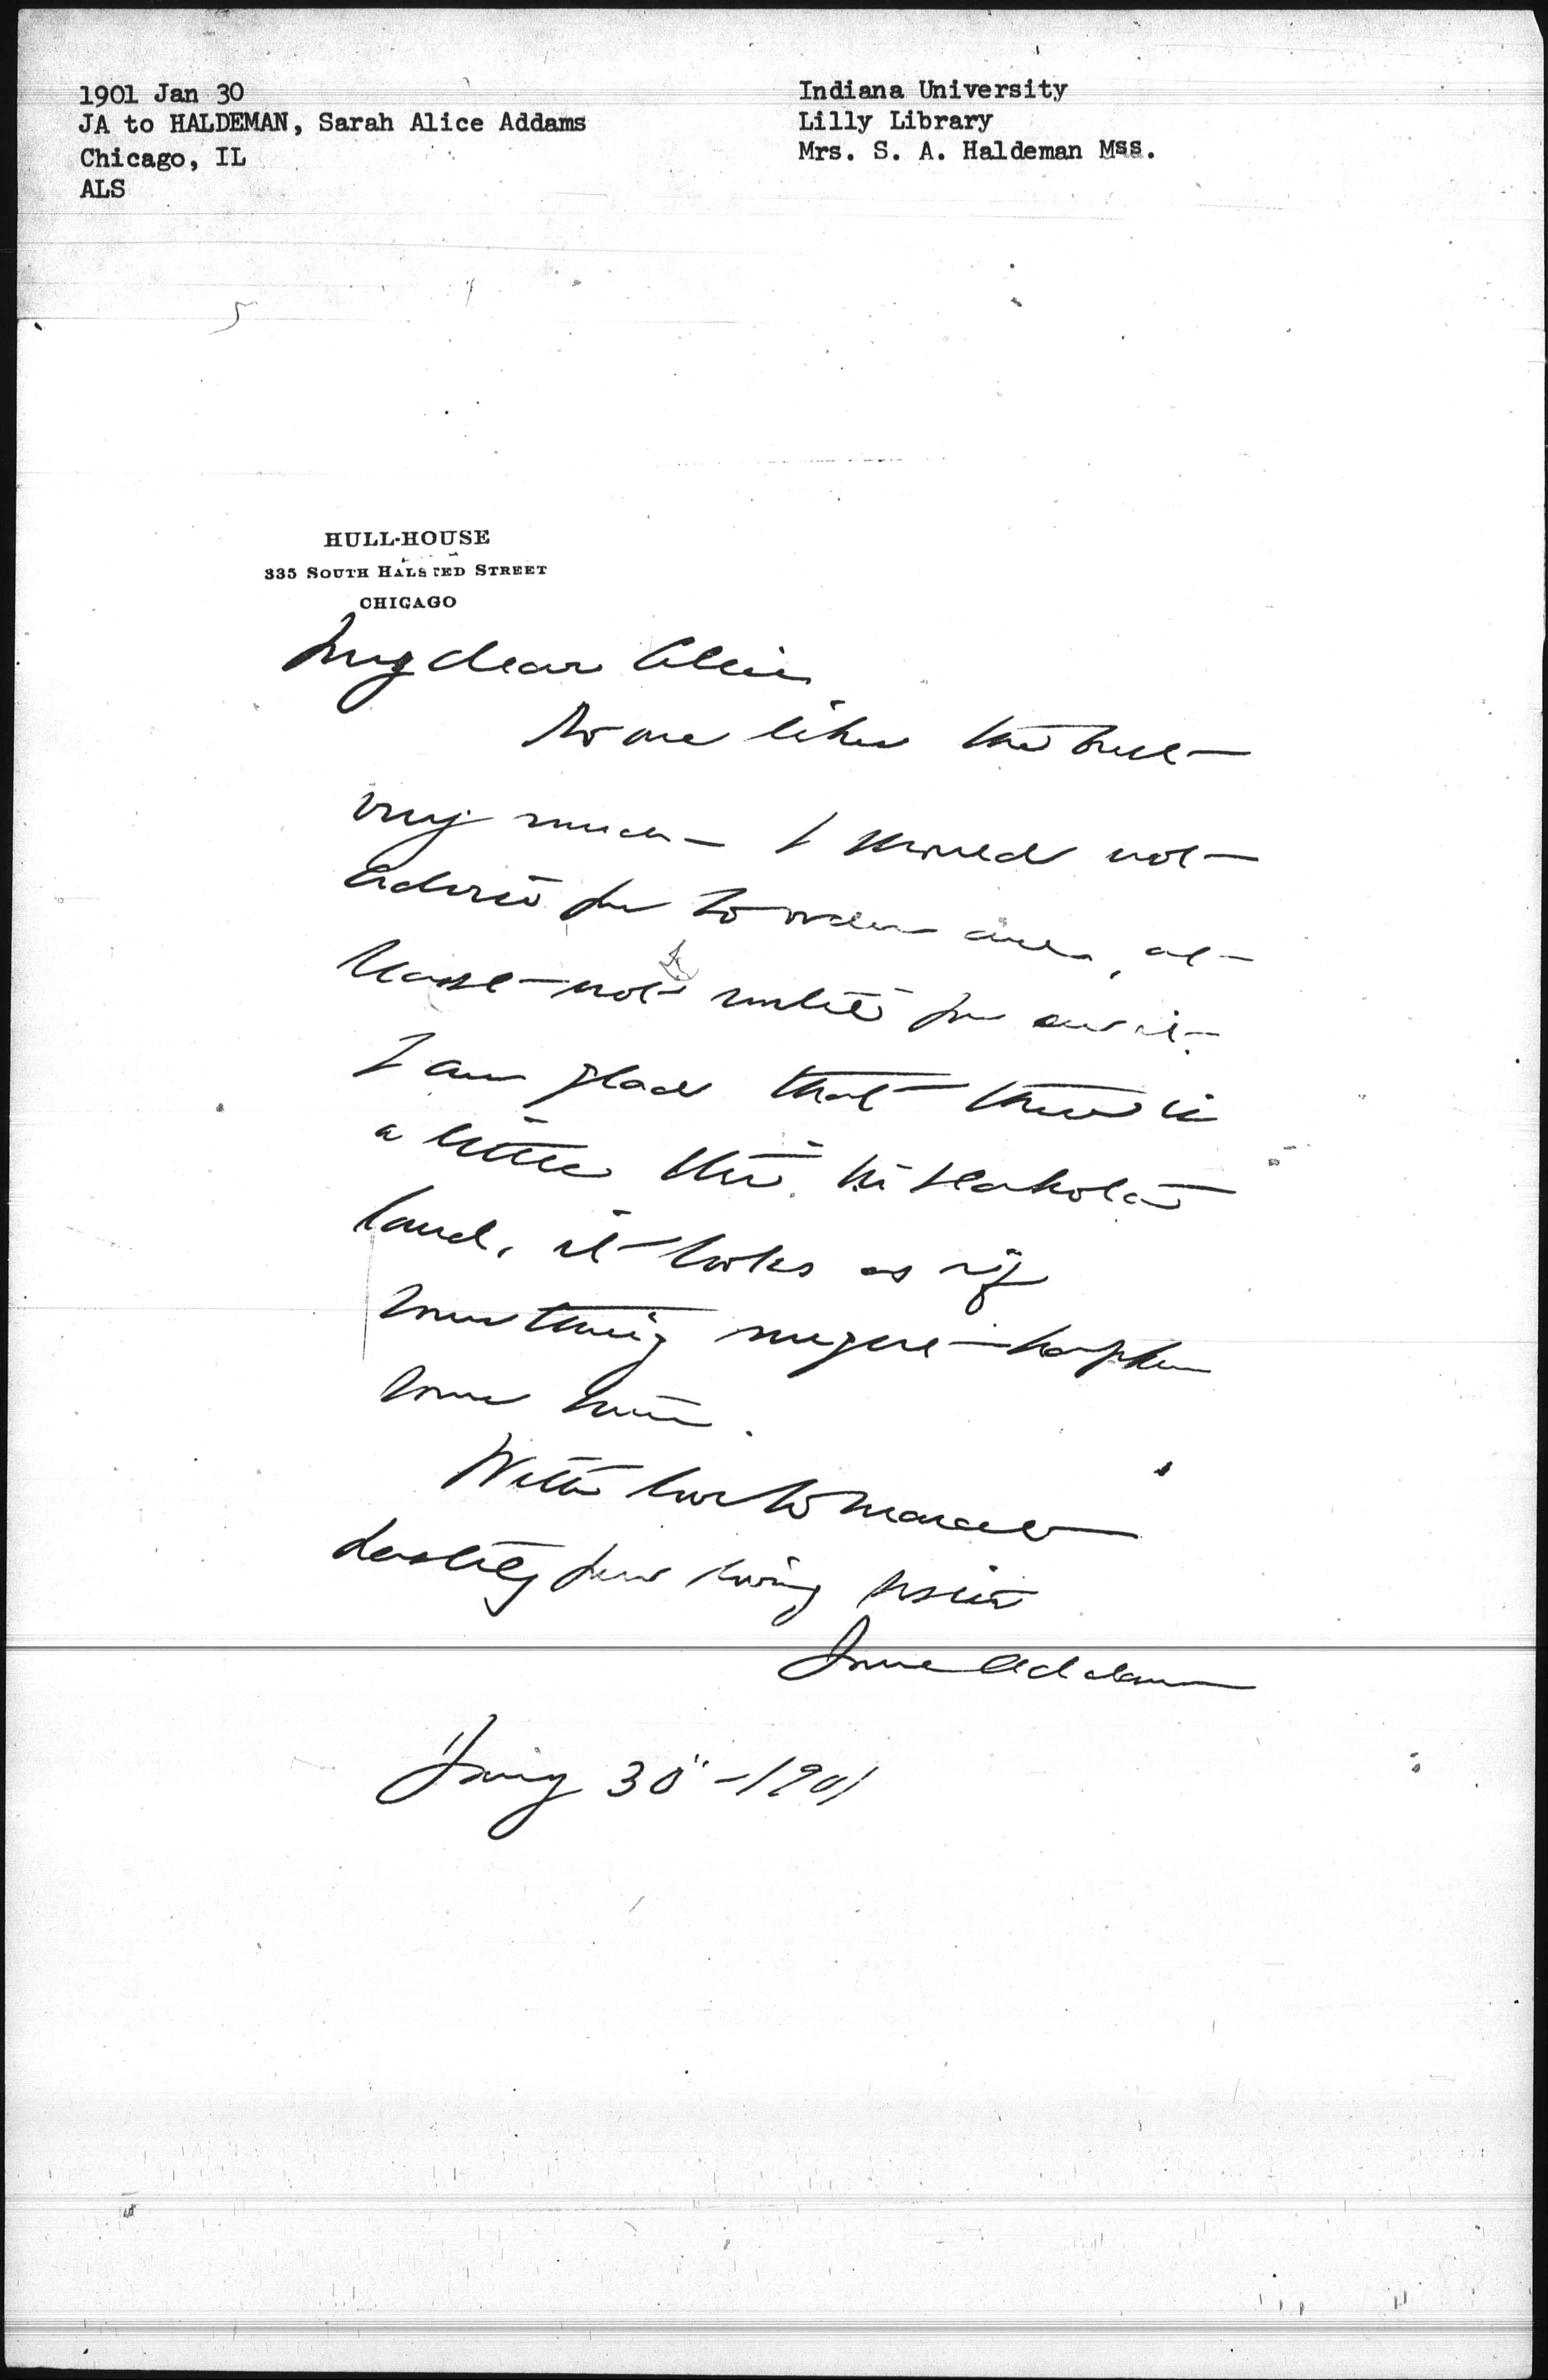 1901 Jan 30
JA to HALDEMAN, Sarah Alice Addams
Chicago, IL
ALS
Indiana University
Lilly Library
Mrs. S. A. Haldeman Mss.
HULL-HOUSE
335 SOUTH HALSTED STREET
CHICAGO
My dear Alice
No one likes the
very much — I should not
advise you to order one, at
least not until you see it.
I am glad that there is
a little stir in Dakota
land, it looks as if
something might happen
some time.
With love to Marcet
hastily your loving sister
Jane Addams
Jany 30" - 1901